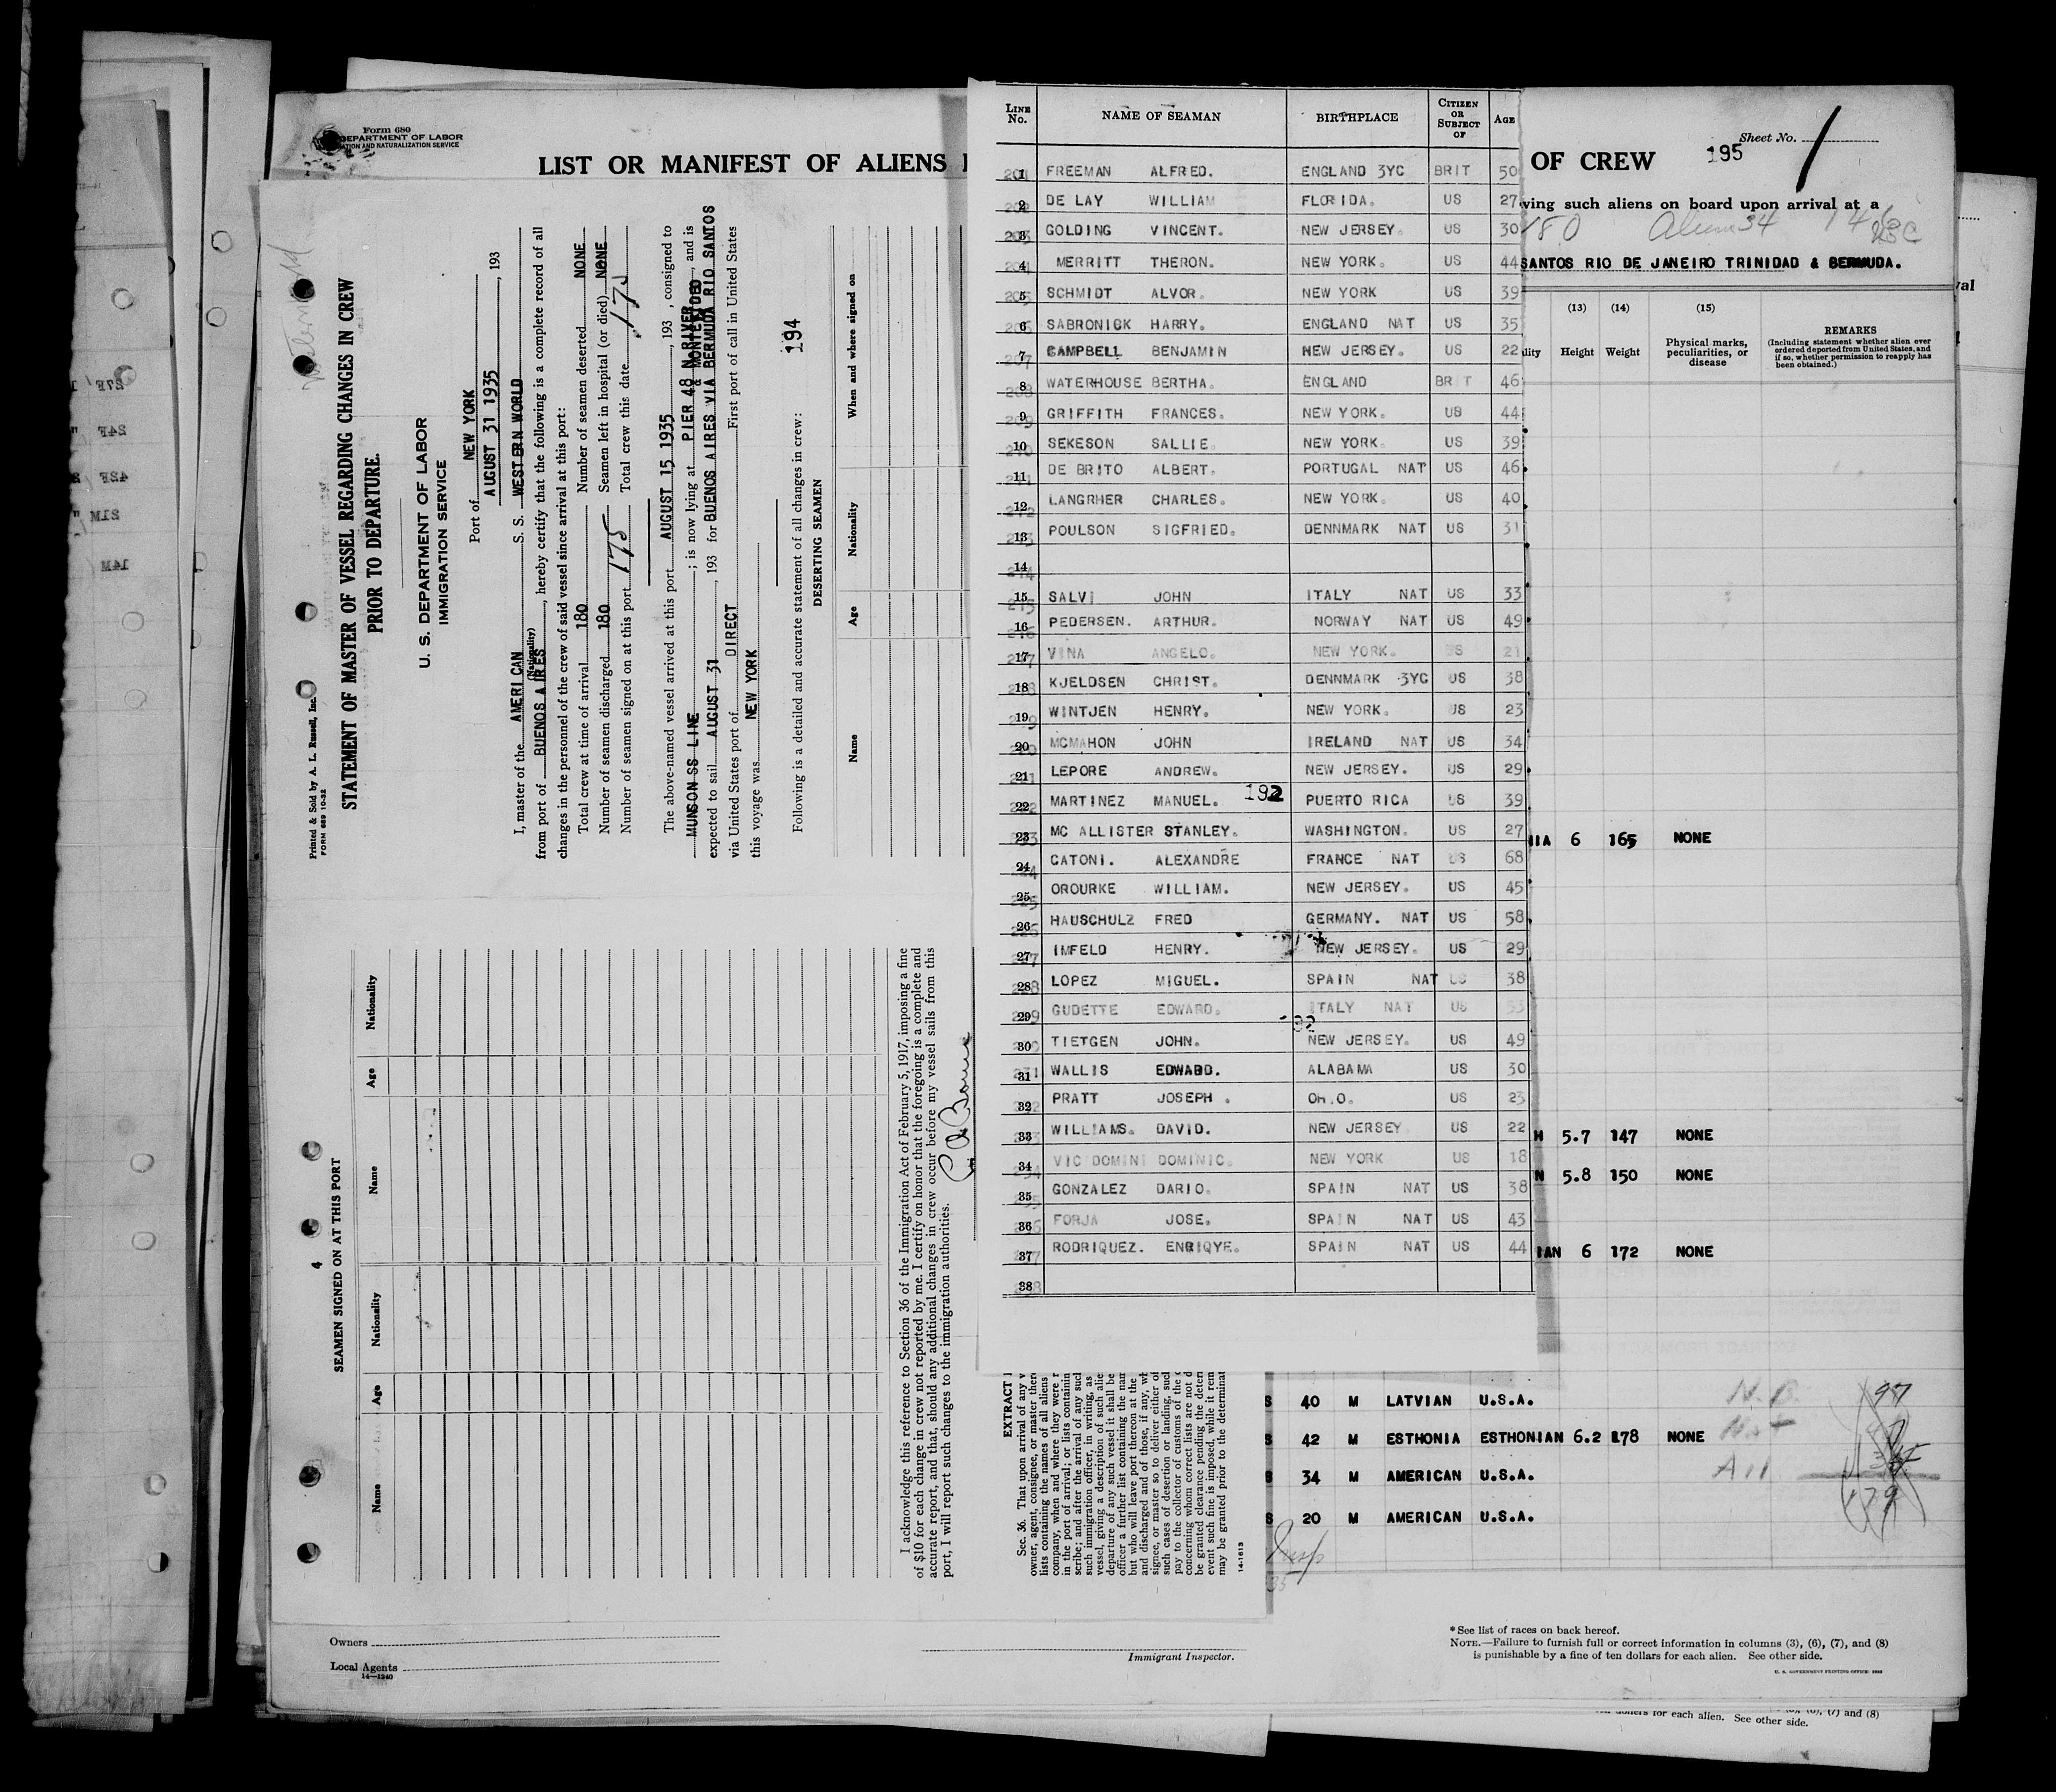 Form 680
DEPARTMENT OF LABOR
LIST OR MANIFEST OF ALIENS
Printed & Sold by A. L. Russell, Inc.
FORM 689 10-32
STATEMENT OF MASTER OF VESSEL REGARDING CHANGES IN CREW
PRIOR TO DEPARTURE.
U. S. DEPARTMENT OF LABOR
IMMIGRATION SERVICE
Port of NEW YORK
AUGUST 31 1935, 193
I, master of the AMERICAN S. S. WESTERN WORLD
(Nationality)
from port of BUENOS AIRES, hereby certify that the following is a complete record of all
changes in the personnel of the crew of said vessel since arrival at this port:
Total crew at time of arrival 180 Number of seamen deserted NONE
Number of seamen discharged 180 Seamen left in hospital (or died) NONE
Number of seamen signed on at this port 175 Total crew this date 175
The above-named vessel arrived at this port AUGUST 15 1935, 193 , consigned to
MUNSON SS LINE ; is now lying at PIER 48 N RIVER, and is
& MONTEVIDEO
expected to sail AUGUST 31, 193 for BUENOS AIRES VIA BERMUDA RIO SANTOS
via United States port of DIRECT First port of call in United States
this voyage was NEW YORK
194
Following is a detailed and accurate statement of all changes in crew:
DESERTING SEAMEN
Name Age Nationality When and where signed on
4
SEAMEN SIGNED ON AT THIS PORT
Name Age Nationality Name Age Nationality
I acknowledge this reference to Section 36 of the Immigration Act of February 5, 1917, imposing a fine
of $10 for each change in crew not reported by me. I certify on honor that the foregoing is a complete and
accurate report, and that, should any additional changes in crew occur before my vessel sails from this
port, I will report such changes to the immigration authorities.
EXTRACT
Sec. 36. That upon arrival of any v
owner, agent, consignee, or master ther
lists containing the names of all aliens
company, when and where they were r
in the port of arrival; or lists containin
scribe; and after the arrival of any such
such immigration officer, in writing, as
vessel, giving a description of such alie
departure of any such vessel it shall be
officer a further list containing the nam
but who will leave port thereon at the
and discharged and of those, if any, wh
signee, or master so to deliver either of
such cases of desertion or landing, suc
pay to the collector of customs of the
concerning whom correct lists are not d
be granted clearance pending the deter
event such fine is imposed, while it rem
may be granted prior to the determinat
14-1613
Owners
Local Agents
14-1240
Immigrant Inspector.
LINE No. NAME OF SEAMAN BIRTHPLACE CITIZEN OR SUBJECT OF AGE
1 FREEMAN ALFRED. ENGLAND 3YC BRIT 50
2 DE LAY WILLIAM FLORIDA. US 27
3 GOLDING VINCENT. NEW JERSEY. US 30
4 MERRITT THERON. NEW YORK. US 44
5 SCHMIDT ALVOR. NEW YORK US 39
6 SABRONICK HARRY. ENGLAND NAT US 35
7 CAMPBELL BENJAMIN NEW JERSEY. US 22
8 WATERHOUSE BERTHA. ENGLAND BRIT 46
9 GRIFFITH FRANCES. NEW YORK. US 44
10 SEKESON SALLIE. NEW YORK. US 39
11 DE BRITO ALBERT. PORTUGAL NAT US 46
12 LANGRHER CHARLES. NEW YORK. US 40
13 POULSON SIGFRIED. DENNMARK NAT US 31
14
15 SALVI JOHN ITALY NAT US 33
16 PEDERSEN. ARTHUR. NORWAY NAT US 49
17 VINA ANGELO. NEW YORK. US 21
18 KJELDSEN CHRIST. DENNMARK 3YC US 38
19 WINTJEN HENRY. NEW YORK. US 23
20 MCMAHON JOHN IRELAND NAT US 34
21 LEPORE ANDREW. NEW JERSEY. US 29
22 MARTINEZ MANUEL. 192 PUERTO RICA US 39
23 MC ALLISTER STANLEY. WASHINGTON. US 27
24 CATONI. ALEXANDRE FRANCE NAT US 68
25 OROURKE WILLIAM. NEW JERSEY. US 45
26 HAUSCHULZ FRED GERMANY. NAT US 58
27 IMFELD HENRY. NEW JERSEY. US 29
28 LOPEZ MIGUEL. SPAIN NAT US 38
29 GUDETTE EDWARD. ITALY NAT US 53
30 TIETGEN JOHN. NEW JERSEY. US 49
31 WALLIS EDWARD. ALABAMA US 30
32 PRATT JOSEPH . OH.O. US 23
33 WILLIAMS. DAVID. NEW JERSEY US 22
34 VIC DOMINI DOMINIC. NEW YORK US 18
35 GONZALEZ DARIO. SPAIN NAT US 38
36 FORJA JOSE. SPAIN NAT US 43
37 RODRIQUEZ. ENRIQYE. SPAIN NAT US 44
38
Sheet No. 1
OF CREW 195
ving such aliens on board upon arrival at a
180 Aliens 34 146 USC
SANTOS RIO DE JANEIRO TRINIDAD & BERMUDA.
(13) (14) (15)
Height Weight Physical marks, peculiarities, or disease
REMARKS
(Including statement whether alien ever ordered deported from United States, and if so, whether permission to reapply has been obtained.)
IA 6 165 NONE
H 5.7 147 NONE
N 5.8 150 NONE
IAN 6 172 NONE
40 M LATVIAN U.S.A.
42 M ESTHONIA ESTHONIAN 6.2 178 NONE
34 M AMERICAN U.S.A.
20 M AMERICAN U.S.A.
N.B. 97
Nat
All
179
*See list of races on back hereof.
NOTE.—Failure to furnish full or correct information in columns (3), (6), (7), and (8)
is punishable by a fine of ten dollars for each alien. See other side.
U. S. GOVERNMENT PRINTING OFFICE
(7) and (8)
for each alien. See other side.